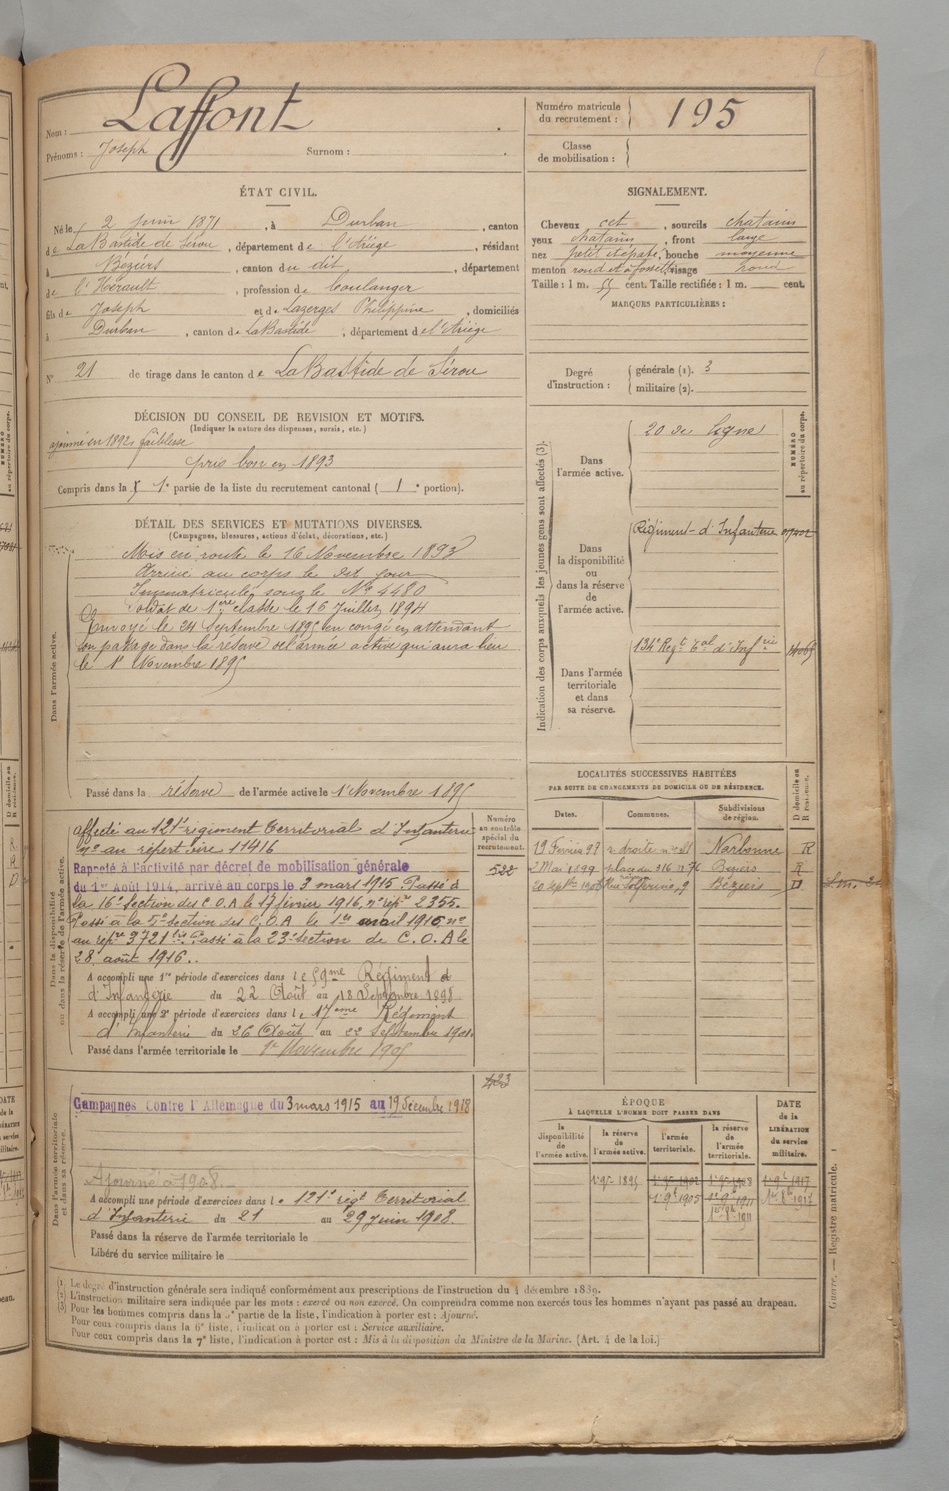 Nom : Laffont
Prénoms : Joseph Surnom :
Numéro matricule du recrutement : 195
Classe de mobilisation :
ÉTAT CIVIL.
Né le 2 juin 1871, à Durban, canton
de LaBastide de Sérou, département de l'Ariège, résidant
à Béziers, canton du dit, département
de l'Hérault, profession de boulanger
fils de Joseph et de Lazerges Philippine, domiciliés
à Durban, canton de LaBastide, département de l'Ariège
N° 21 de tirage dans le canton de LaBastide de Sérou
SIGNALEMENT.
Cheveux cht, sourcils chatains
yeux chatains, front large
nez petit épaté, bouche moyenne
menton rond et à fossette visage rond
Taille : 1 m. 55 cent. Taille rectifiée : 1 m. cent.
MARQUES PARTICULIÈRES :
Degré d'instruction : générale (1). 3
militaire (2).
DÉCISION DU CONSEIL DE REVISION ET MOTIFS.
(Indiquer la nature des dispenses, sursis, etc.)
ajourné en 1892, faiblesse
pris bon en 1893
Compris dans la 1e partie de la liste du recrutement cantonal ( 1e portion).
DÉTAIL DES SERVICES ET MUTATIONS DIVERSES.
(Campagnes, blessures, actions d'éclat, décorations, etc.)
Dans l'armée active.
Mis en route le 16 Novembre 1893
Arrivé au corps le dit jour
Immatriculé sous le No 4480
Soldat de 1ère classe le 16 Juillet 1894
Envoyé le 24 Septembre 1895 en congé en attendant
son passage dans la réserve de l'armée active qui aura lieu
le 1r Novembre 1895
Passé dans la réserve de l'armée active le 1r Novembre 1895
Indication des corps auxquels les jeunes gens sont affectés (3).
NUMÉRO au répertoire du corps.
Dans l'armée active.
20 de ligne
Dans la disponibilité ou dans la réserve de l'armée active.
Régiment d'Infanterie
Dans l'armée territoriale et dans sa réserve.
134e Regt tal d'Infrie
Dans la disponibilité ou dans la réserve de l'armée active.
Numéro au contrôle spécial du recrutement.
522
affecté au 121e régiment Territorial d'Infanterie
No au répertoire 11416
Rappelé à l'activité par décret de mobilisation générale
du 1er Août 1914, arrivé au corps le 3 mars 1915 Passé à
la 16e Section des C.O.A le 17 février 1916, no répre 2355.
Passé à la 5e section des C.O.A le 1er avril 1916 no
au repre 3721 bis Passé à la 23e Section de C.O.A le
28 août 1916..
A accompli une 1re période d'exercices dans le 59me Régiment d
d'Infanterie du 22 Août au 18 Septembre 1898
A accompli une 2e période d'exercices dans le 17eme Régiment
d'Infanterie du 26 Août au 22 Septembre 1901.
Passé dans l'armée territoriale le 1r Novembre 1905
423
LOCALITÉS SUCCESSIVES HABITÉES
PAR SUITE DE CHANGEMENTS DE DOMICILE OU DE RÉSIDENCE.
Dates. Communes. Subdivisions de région. D domicile ou R résidence.
19 Février 98 r. droite no 81 Narbonne R
2 Mai 1899 place du 316 no 76 Béziers R
20 septbre 1908 Rue Solférino, 9 Béziers D
Dans l'armée territoriale et dans sa réserve.
Campagnes Contre l'Allemagne du 3 mars 1915 au 19 décembre 1918
Ajourné à 1908.
A accompli une période d'exercices dans le 121e régt Territorial
d'Infanterie du 21 au 29 juin 1908.
Passé dans la réserve de l'armée territoriale le
Libéré du service militaire le
ÉPOQUE
À LAQUELLE L'HOMME DOIT PASSER DANS
la disponibilité de l'armée active. la réserve de l'armée active. l'armée territoriale. la réserve de l'armée territoriale.
DATE de la LIBÉRATION du service militaire.
1r 9bre 1895 1r 9bre 1902 1r 9bre 1908 1r 9bre 1917
1r 9bre 1905 1r 9bre 1911
(1) Le degré d'instruction générale sera indiqué conformément aux prescriptions de l'instruction du 4 décembre 1889.
(2) L'instruction militaire sera indiquée par les mots : exercé ou non exercé. On comprendra comme non exercés tous les hommes n'ayant pas passé au drapeau.
(3) Pour les hommes compris dans la 5e partie de la liste, l'indication à porter est : Ajourné.
Pour ceux compris dans la 6e liste, l'indication à porter est : Service auxiliaire.
Pour ceux compris dans la 7e liste, l'indication à porter est : Mis à la disposition du Ministre de la Marine. (Art. 4 de la loi.)
Guerre. — Registre matricule. 1